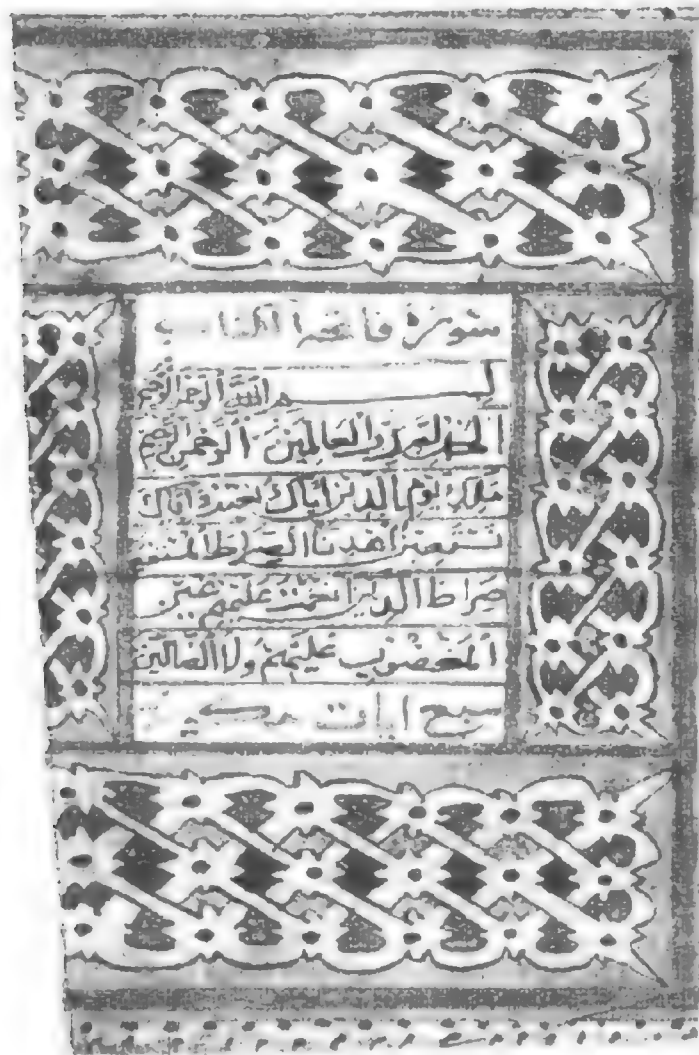 سورة فاتحة الكتاب
بسم الله الرحمن الرحيم
الحمد لله رب العالمين الرحمن الرحيم
ملك يوم الدين اياك نعبد واياك
نستعين اهدنا الصراط المستقيم
صراط الذين انعمت عليهم غير
المغضوب عليهم ولا الضالين
سبع ايات مكية